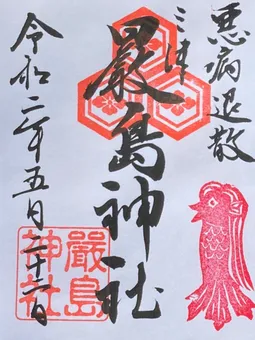 悪病退散
三津
嚴島神社
令和二年五月二十日
嚴島
神社